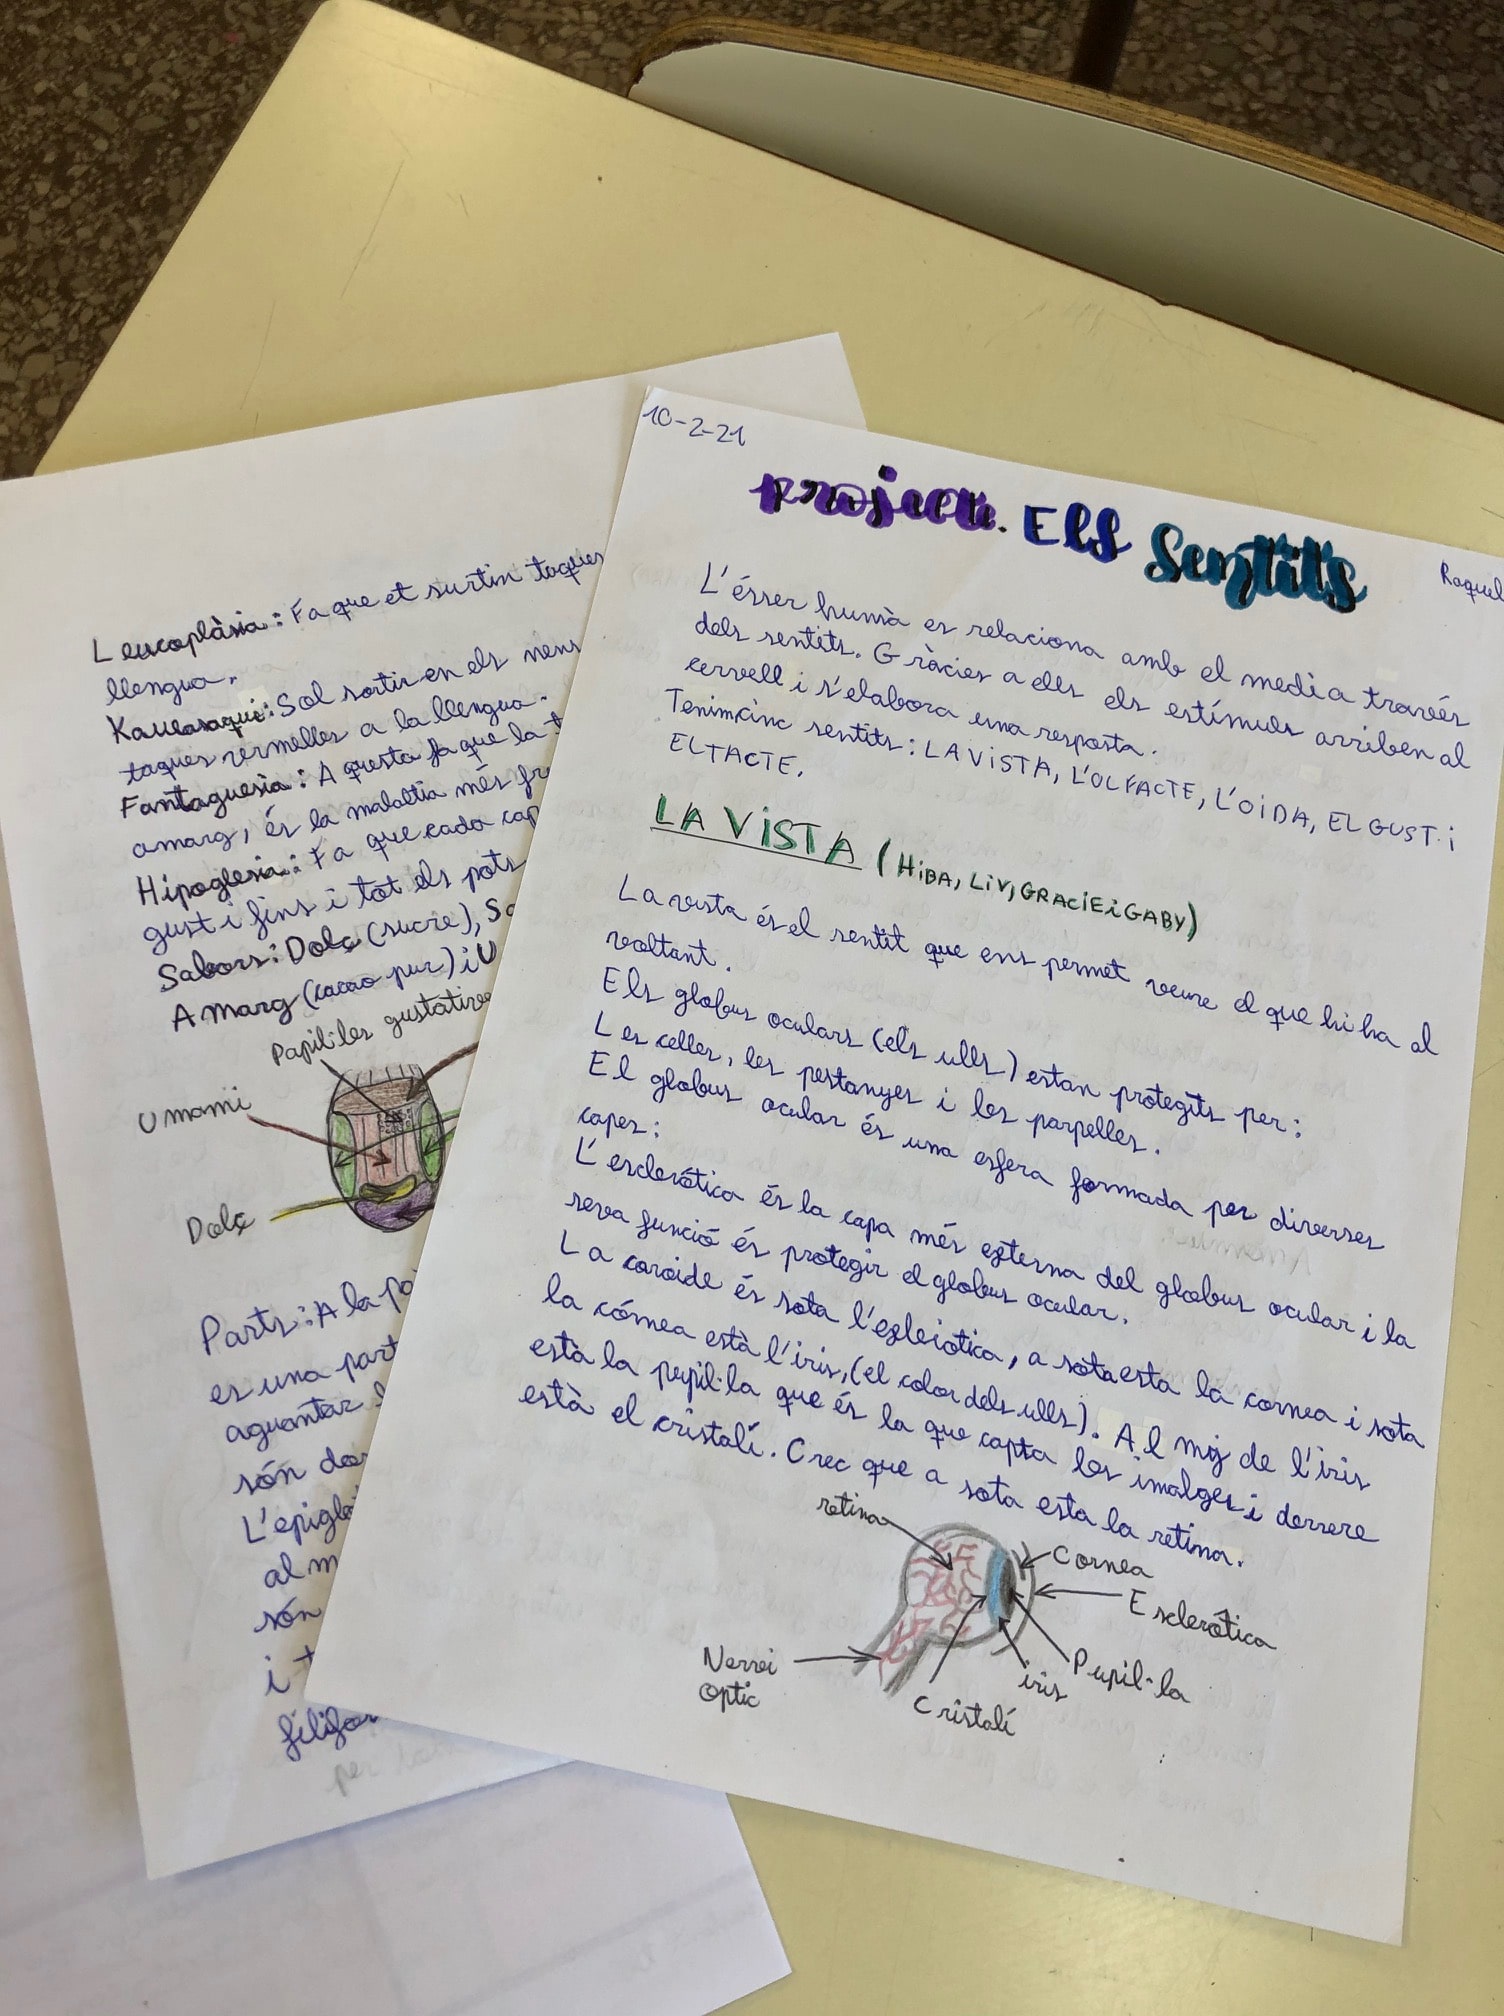 10-2-21
Projecte. Els Sentits
Raquel
L'ésser humà es relaciona amb el medi a través
dels sentits. Gràcies a ells els estímuls arriben al
cervell i s'elabora una resposta.
Tenim cinc sentits: LA VISTA, L'OLFACTE, L'OIDA, EL GUST i
EL TACTE.
LA VISTA (HIBA, LIV, GRACIE i GABY)
La vista és el sentit que ens permet veure el que hi ha al
voltant.
Els globus oculars (els ulls) estan protegits per:
Les celles, les pestanyes i les parpelles.
El globus ocular és una esfera formada per diverses
capes:
L'escleròtica és la capa més externa del globus ocular i la
seva funció és protegir el globus ocular.
La coroide és sota l'esleiotica, a sota esta la cornea i sota
la córnea està l'iris, (el color dels ulls). Al mig de l'iris
està la pupil·la que és la que capta les imatges i derrere
està el cristalí. Crec que a sota esta la retina.
retina
Cornea
Escleròtica
Pupil·la
iris
Cristalí
Nervi
Optic
Leucoplàsia: Fa que et surtin taques
llengua.
Kawasaqui: Sol sortir en els nens
taques vermelles a la llengua.
Fantaguesia: Aquesta fa que la
amarg, és la malaltia més
Hipoglesia: Fa que cada
gust i fins i tot els pots
Sabors: Dolç (sucre),
Amarg (cacao pur) i
Papil·les gustatives
Umami
Dolç
Parts: A la
es una part
aguantar
són
al
són
i